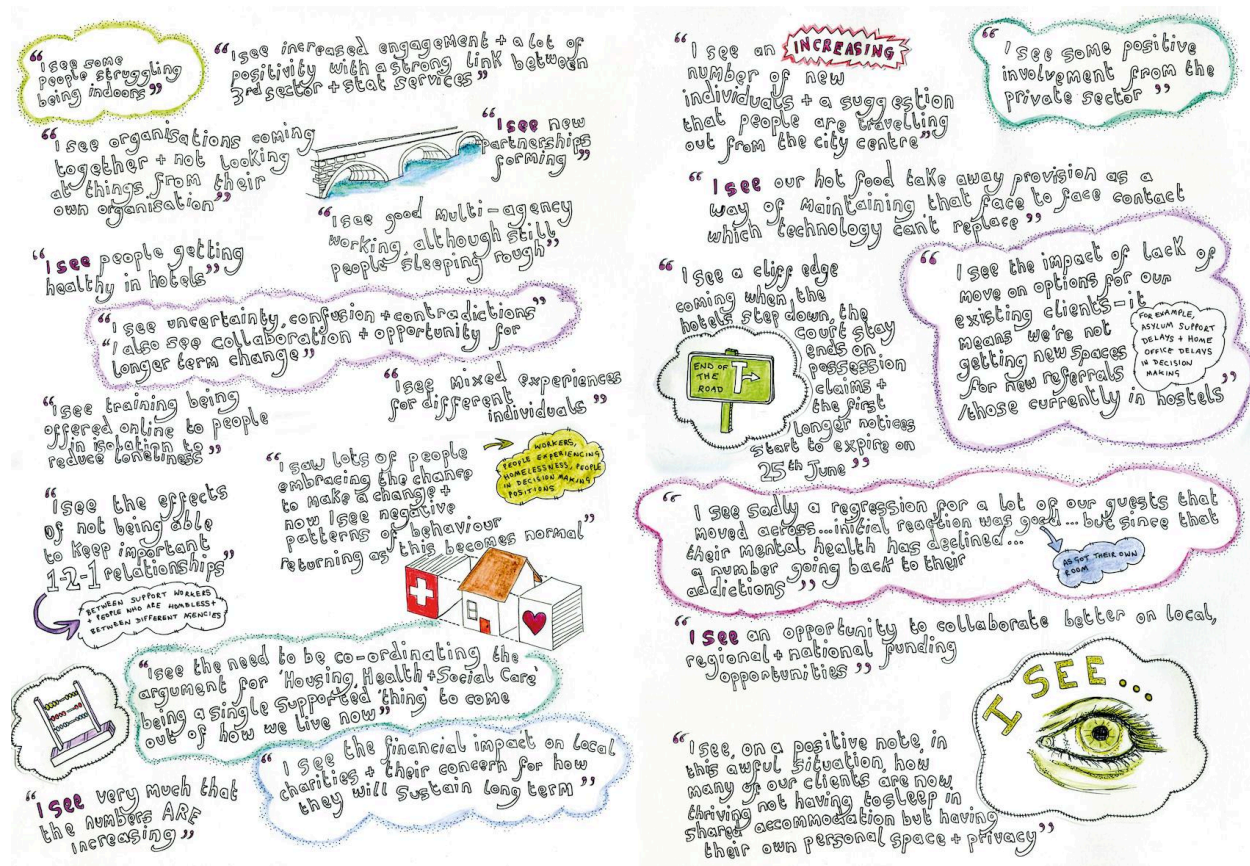 “I see some
people struggling
being indoors”
“I see increased engagement + a lot of
positivity with a strong link between
3rd sector + stat services”
“I see organisations coming
together + not looking
at things from their
own organisation”
“I see new
partnerships
forming”
“I see good multi-agency
working, although still
people sleeping rough”
“I see people getting
healthy in hotels”
“I see uncertainty, confusion + contradictions”
“I also see collaboration + opportunity for
longer term change”
“I see mixed experiences
for different
individuals”
“I see training being
offered online to people
in isolation to
reduce loneliness”
“I saw lots of people
embracing the chance
to make a change +
now I see negative
patterns of behaviour
returning as this becomes normal”
WORKERS,
PEOPLE EXPERIENCING
HOMELESSNESS, PEOPLE
IN DECISION MAKING
POSITIONS
“I see the effects
of not being able
to keep important
1-2-1 relationships”
BETWEEN SUPPORT WORKERS
+ PEOPLE WHO ARE HOMELESS +
BETWEEN DIFFERENT AGENCIES
“I see the need to be co-ordinating the
argument for ‘Housing, Health + Social Care’
being a single supported ‘thing’ to come
out of how we live now”
“I see the financial impact on local
charities + their concern for how
they will sustain long term”
“I see very much that
the numbers ARE
increasing”
“I see an INCREASING
number of new
individuals + a suggestion
that people are travelling
out from the city centre”
“I see some positive
involvement from the
private sector”
“I see our hot food take away provision as a
way of maintaining that face to face contact
which technology can't replace”
“I see a cliff edge
coming when the
hotels step down, the
court stay
ends on
possession
claims +
the first
longer notices
start to expire on
25th June”
END OF
THE
ROAD
“I see the impact of lack of
move on options for our
existing clients – it
means we're not
getting new spaces
for new referrals
/those currently in hostels”
FOR EXAMPLE,
ASYLUM SUPPORT
DELAYS + HOME
OFFICE DELAYS
IN DECISION
MAKING
“I see sadly a regression for a lot of our guests that
moved across... initial reaction was good... but since that
their mental health has declined...
a number going back to their
addictions”
AS GOT THEIR OWN
ROOM
“I see an opportunity to collaborate better on local,
regional + national funding
opportunities”
I SEE...
“I see, on a positive note, in
this awful situation, how
many of our clients are now
thriving not having to sleep in
shared accommodation but having
their own personal space + privacy”